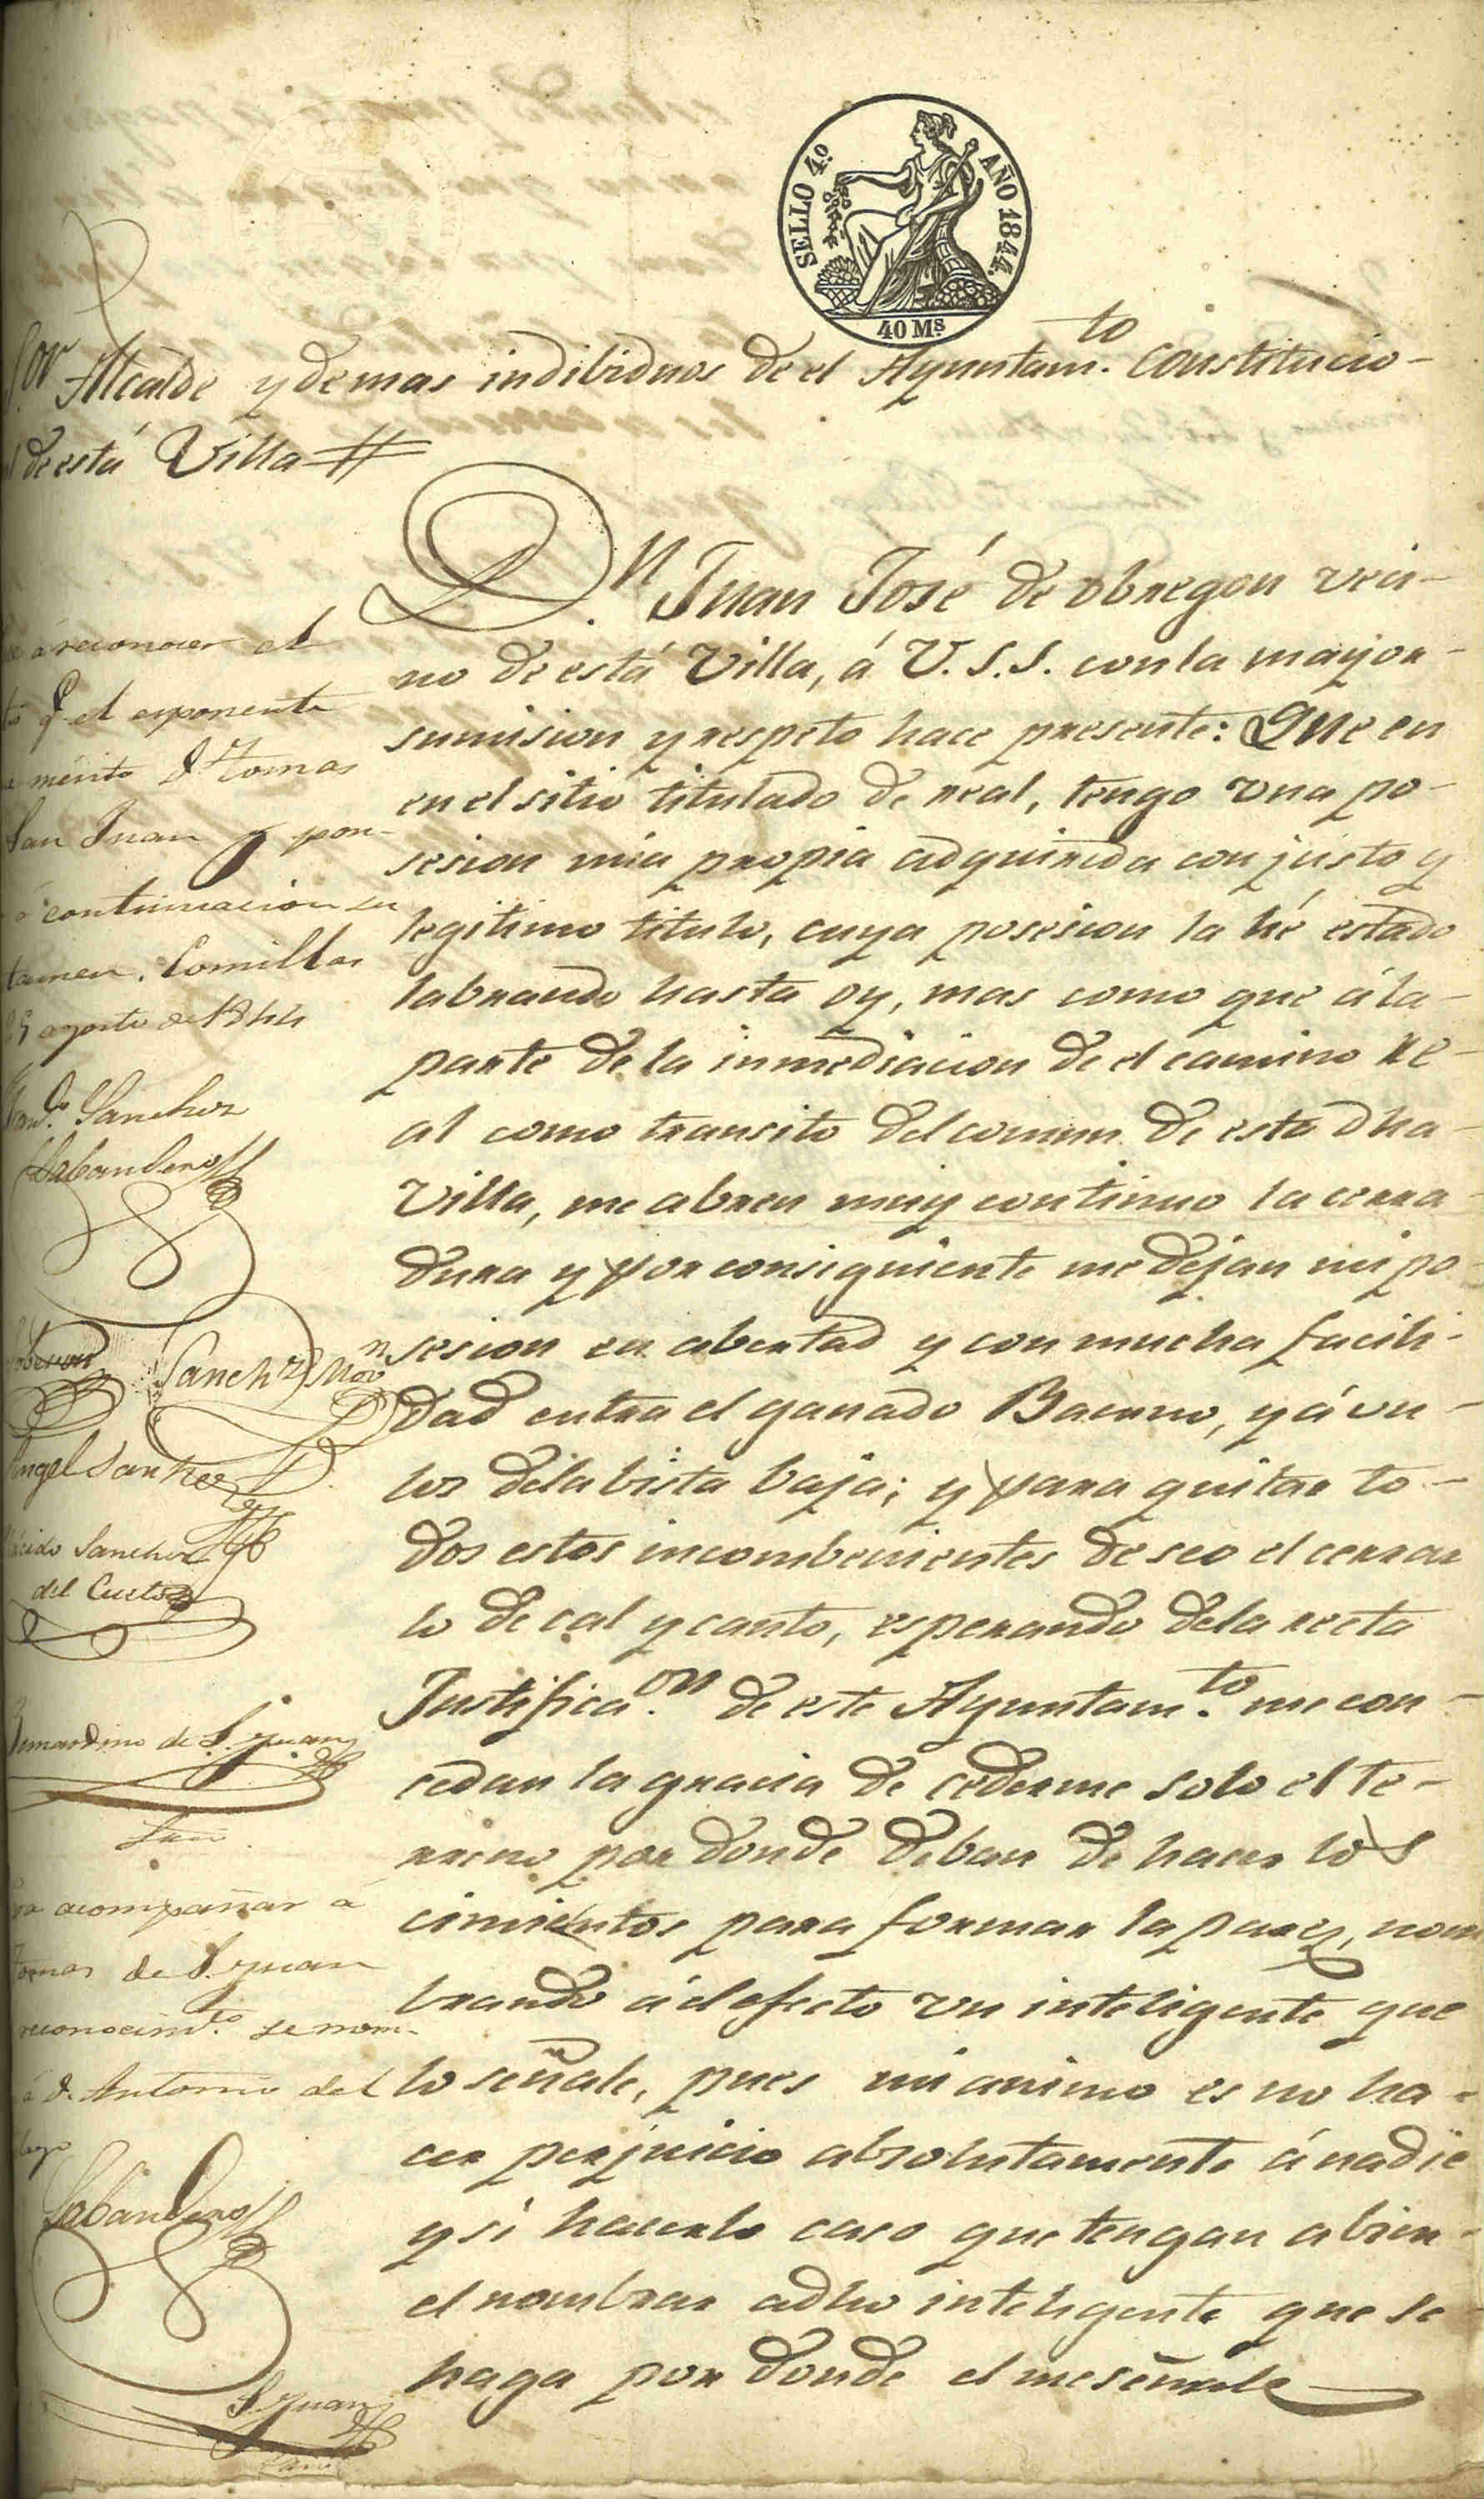 SELLO 4.º AÑO 1844.
40 Ms
Sor Alcalde y demas indibiduos de el Ayuntam.to Constitucio-
l de está Villa #
D.n Juan José de obregon veci-
no de está Villa, á V.S.S. con la mayor-
sumision y respeto hace presente: Que en
en el sitio titulado de real, tengo una po-
sesion mia propia adquirida con justo y
legitimo titulo, cuya posesion la hé estado
labrando hasta oy, mas como que á la-
parte de la inmediacion de el camino re-
al como transito del comun de esta dha-
Villa, me abren muy continuo la cerra
dura y por consiguiente me dejan mi po
sesion en abertad y con mucha facili-
dad entra el ganado Bacuno, y á vu-
los dela bista baja; y para quitar to-
dos estos incombenientes deseo el cerrar
lo de cal y canto, esperando dela recta
Justifica.on de este Ayuntam.to me con-
cedan la gracia de cederme solo el te-
rreno por donde deban de hacer los
cimientos para formar la parez, nom
brando á el efecto un inteligente que
lo señale, pues mi animo es no ha-
cer perjuicio absolutamente á nadie
y si hacerlo caso que tengan a bien
el nombrar a dho inteligente que se
haga por donde el me señale
á reconocer el
q.e el esponente
mérito D.n Tomas
San Juan y pon-
á continuacion su
tamen. Comillas
agosto de 1844
Sanchez
Labandero
Sanchez Mov.n
Angel Sanchez
Sanchez
del Cueto
Bernardino de S. Juan
acompañar á
Tomas de S. Juan
reconocim.to se nom-
á D. Antonio del
Labandero
S. Juan